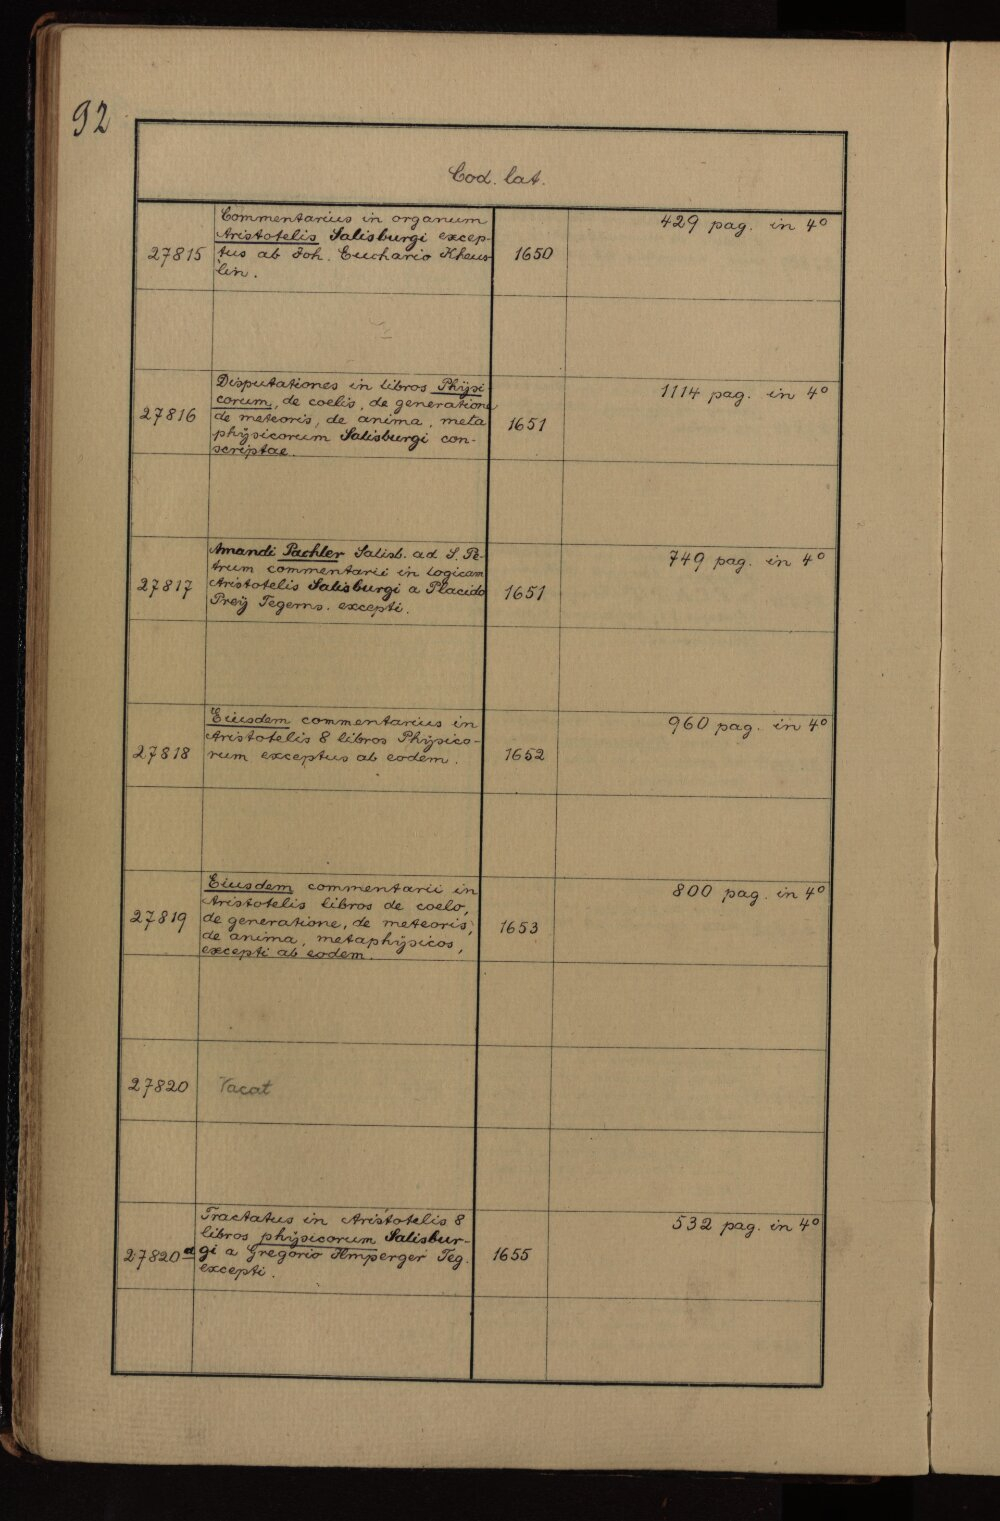 92
Cod. lat.
27815
Commentarius in organum
Aristotelis Salisburgi excep-
tus ab Joh. Euchario Kheus
lin.
1650
429 pag. in 4°
27816
Disputationes in libros Physi-
corum, de coelis, de generatione
de meteoris, de anima, meta
physicorum Salisburgi con-
scriptae.
1651
1114 pag. in 4°
27817
Amandi Pachler Salisb. ad S. Pe-
trum commentarii in logicam
Aristotelis Salisburgi a Placido
Preÿ Tegerns. excepti.
1651
749 pag. in 4°
27818
Eiusdem commentarius in
Aristotelis 8 libros Phÿsico-
rum exceptus ab eodem.
1652
960 pag. in 4°
27819
Eiusdem commentarii in
Aristotelis libros de coelo,
de generatione, de meteoris,
de anima, metaphÿsicos,
excepti ab eodem.
1653
800 pag. in 4°
27820
Vacat
27820a
Tractatus in Aristotelis 8
libros phÿsicorum Salisbur-
gi a Gregorio Ilmperger Teg.
excepti.
1655
532 pag. in 4°